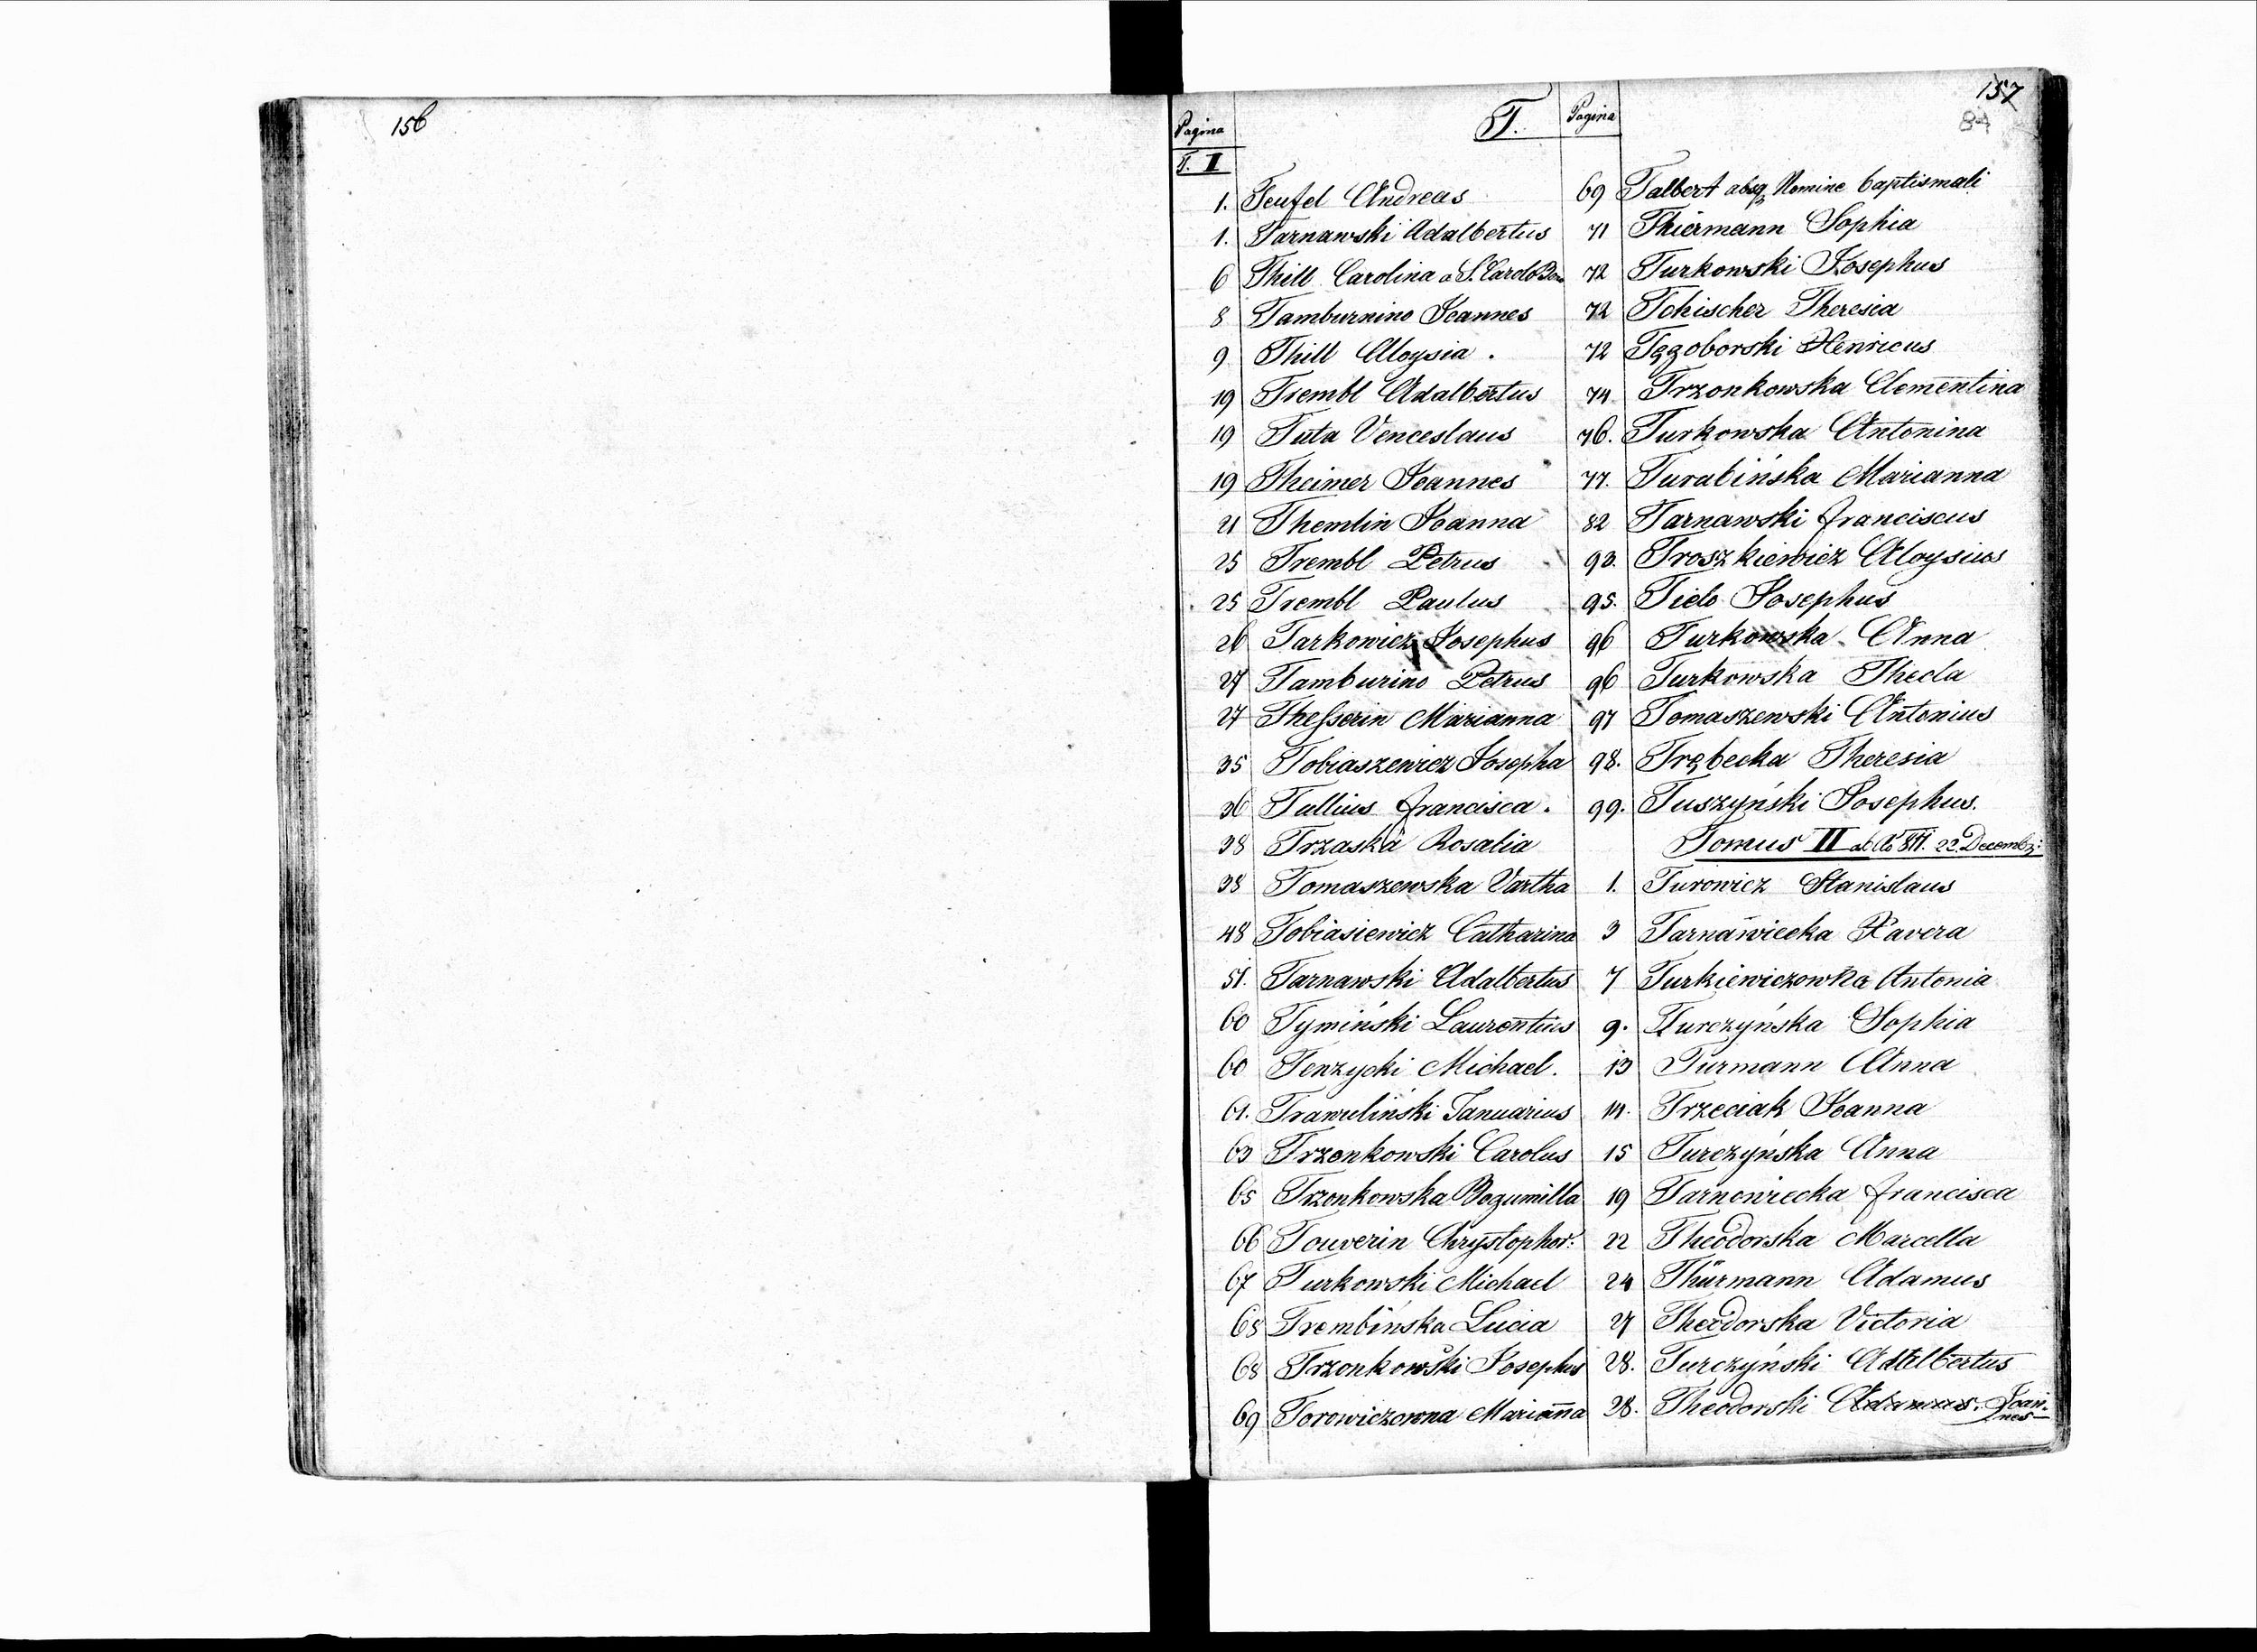 156
157
84
Pagina
T.
Pagina
T. I
1. Teufel Andreas
1. Tarnawski Adalbertus
6 Thill Carolina a S. Carolo
8 Tamburnino Joannes
9 Thill Aloysia.
19 Trembl Adalbertus
19 Tuta Venceslaus
19 Theimer Joannes
21 Themlin Joanna
25 Trembl Petrus
25 Trembl Paulus
26 Tarkowicz Josephus
27 Tamburino Petrus
27 Thesserin Marianna
35 Tobiaszewicz Josepha
36 Tullius Francisca.
38 Trzaska Rosalia
38 Tomaszewska Vartha
48 Tobiasiewicz Catharina
51. Tarnawski Adalbertus
60 Tymiński Laurentius
60 Tenzycki Michael.
61. Trawuliński Januarius
63 Trzonkowski Carolus
65 Trzonkowska Bogumilla
66 Touverin Chrystophor:
67 Turkowski Michael
68 Trembińska Lucia
68 Trzonkowski Josephus
69 Torowiczowna Marianna
69 Talbert absq Nomine baptismali
71 Thiermann Sophia
72 Turkowski Josephus
72 Tchischer Theresia
72 Tęgoborski Henricus
74 Trzonkowska Clementina
76. Turkowska Antonina
77. Turabińska Marianna
82 Tarnawski Franciscus
93. Troszkiewicz Aloysius
95. Tielo Josephus
96 Turkowska Anna
96 Turkowska Thecla
97 Tomaszewski Antonius
98. Trębecka Theresia
99. Tuszyński Josephus.
Tomus II ab Ao 22 Decembr:
1. Turowicz Stanislaus
3 Tarnawiecka Xavera
7 Turkiewiczowka Antonia
9. Turczyńska Sophia
13 Turmann Anna
14. Trzeciak Joanna
15 Turczyńska Anna
19 Tarnowiecka Francisca
22 Theodorska Marcella
24 Thürmann Adamus
27 Theodorska Victoria
28. Turczyński Adalbertus
28. Theodorski Adamus. Joan-
nes